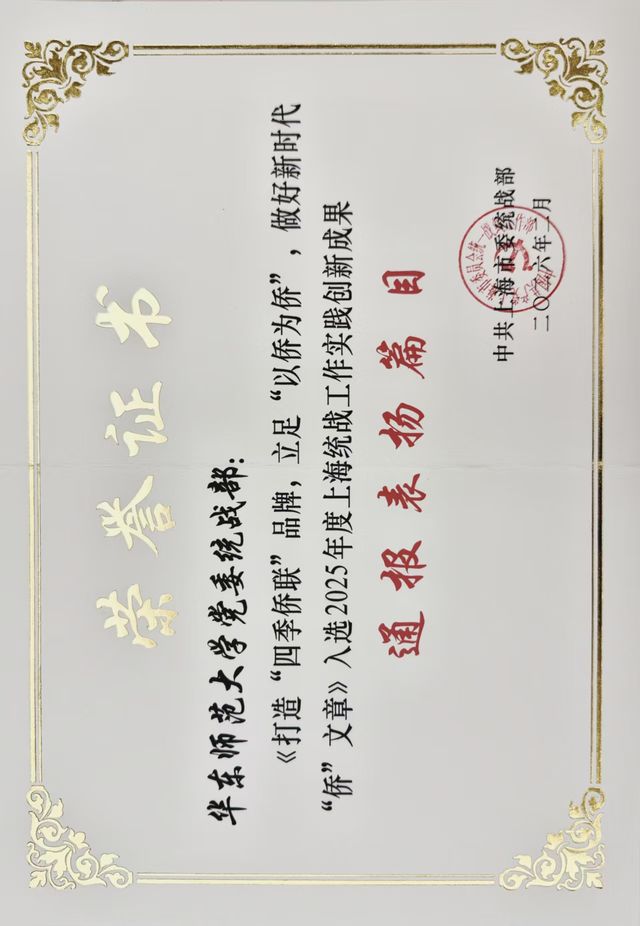 荣誉证书
华东师范大学党委统战部：
《打造“四季侨联”品牌，立足“以侨为侨”，做好新时代
“侨”文章》入选2025年度上海统战工作实践创新成果
通报表扬篇目
中共上海市委统战部
二〇二六年二月